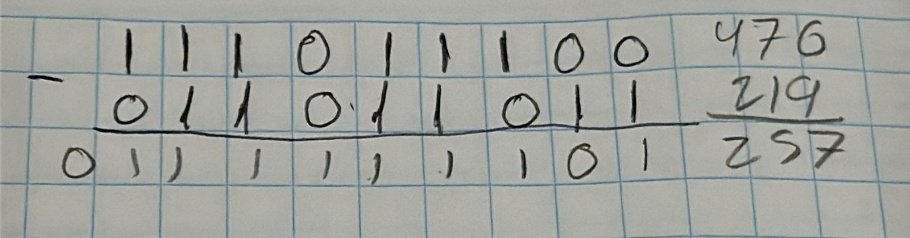 - 1 1 1 0 1 1 1 0 0 476
0 1 1 0 1 1 0 1 1 219
0 1 1 1 1 1 1 1 0 1 257